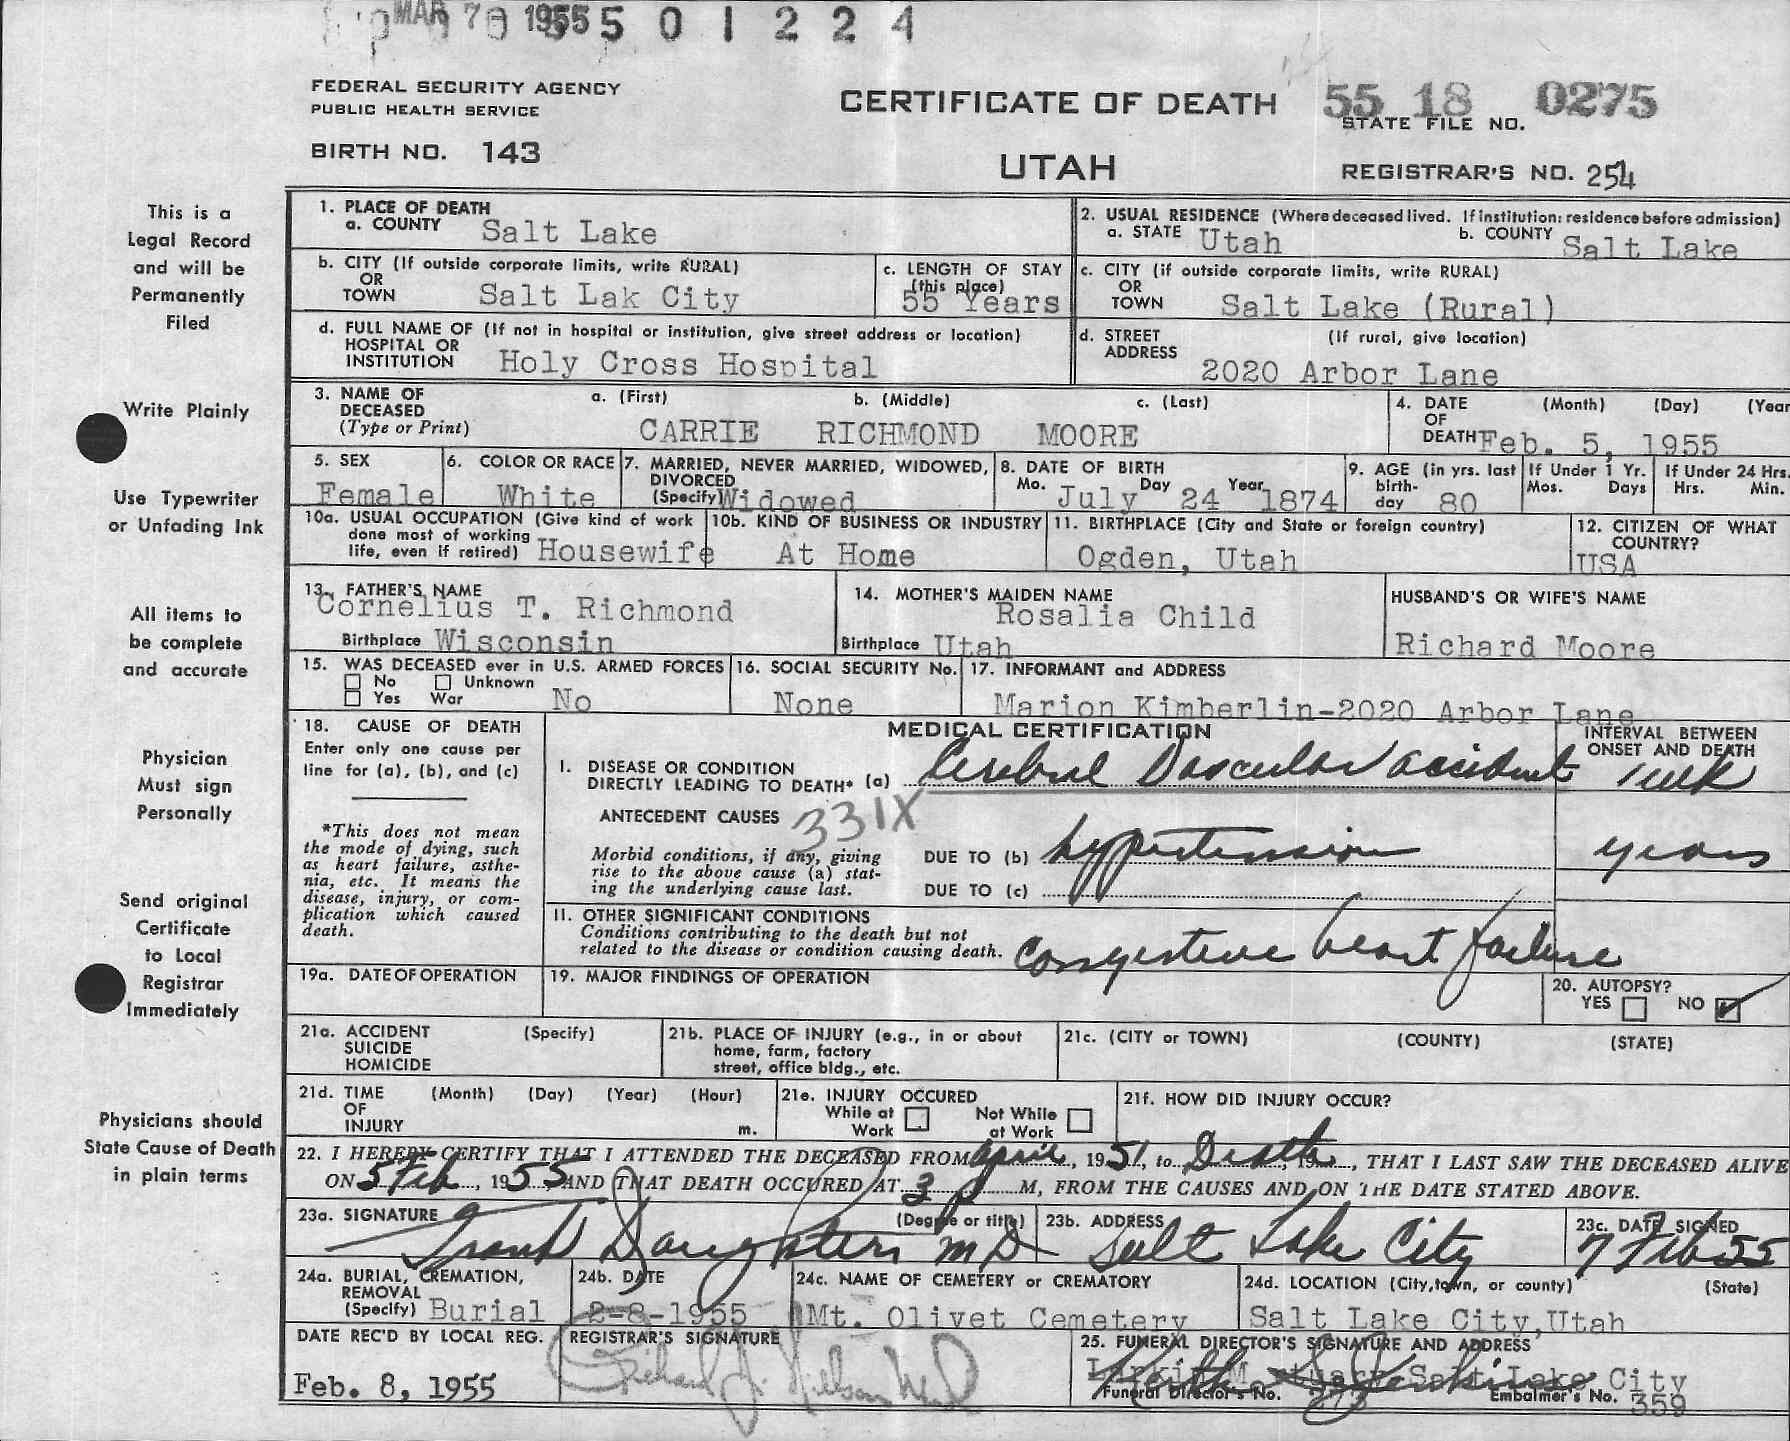 MAR 1955 5 0 1 2 2 4
FEDERAL SECURITY AGENCY
PUBLIC HEALTH SERVICE
BIRTH NO. 143
CERTIFICATE OF DEATH
UTAH
55 18 0275
STATE FILE NO.
REGISTRAR'S NO. 254
This is a
Legal Record
and will be
Permanently
Filed
Write Plainly
Use Typewriter
or Unfading Ink
All items to
be complete
and accurate
Physician
Must sign
Personally
Send original
Certificate
to Local
Registrar
Immediately
Physicians should
State Cause of Death
in plain terms
1. PLACE OF DEATH
a. COUNTY Salt Lake
2. USUAL RESIDENCE (Where deceased lived. If institution: residence before admission)
a. STATE Utah b. COUNTY Salt Lake
b. CITY (If outside corporate limits, write RURAL)
OR
TOWN Salt Lak City
c. LENGTH OF STAY
(this place)
55 Years
c. CITY (if outside corporate limits, write RURAL)
OR
TOWN Salt Lake (Rural)
d. FULL NAME OF (If not in hospital or institution, give street address or location)
HOSPITAL OR
INSTITUTION Holy Cross Hospital
d. STREET (If rural, give location)
ADDRESS
2020 Arbor Lane
3. NAME OF DECEASED (Type or Print) a. (First) b. (Middle) c. (Last)
CARRIE RICHMOND MOORE
4. DATE OF DEATH (Month) (Day) (Year
Feb. 5, 1955
5. SEX
Female
6. COLOR OR RACE
White
7. MARRIED, NEVER MARRIED, WIDOWED,
DIVORCED
(Specify) Widowed
8. DATE OF BIRTH
Mo. Day Year
July 24 1874
9. AGE (in yrs. last
birth-
day 80
If Under 1 Yr.
Mos. Days
If Under 24 Hrs.
Hrs. Min.
10a. USUAL OCCUPATION (Give kind of work
done most of working
life, even if retired) Housewife
10b. KIND OF BUSINESS OR INDUSTRY
At Home
11. BIRTHPLACE (City and State or foreign country)
Ogden, Utah
12. CITIZEN OF WHAT
COUNTRY?
USA
13. FATHER'S NAME
Cornelius T. Richmond
Birthplace Wisconsin
14. MOTHER'S MAIDEN NAME
Rosalia Child
Birthplace Utah
HUSBAND'S OR WIFE'S NAME
Richard Moore
15. WAS DECEASED ever in U.S. ARMED FORCES
No Unknown
Yes War No
16. SOCIAL SECURITY No.
None
17. INFORMANT and ADDRESS
Marion Kimberlin-2020 Arbor Lane
18. CAUSE OF DEATH
Enter only one cause per
line for (a), (b), and (c)
*This does not mean
the mode of dying, such
as heart failure, asthe-
nia, etc. It means the
disease, injury, or com-
plication which caused
death.
MEDICAL CERTIFICATION
INTERVAL BETWEEN
ONSET AND DEATH
I. DISEASE OR CONDITION
DIRECTLY LEADING TO DEATH* (a) Cerebral Vascular accident 1 wk
ANTECEDENT CAUSES 331X
Morbid conditions, if any, giving
rise to the above cause (a) stat-
ing the underlying cause last.
DUE TO (b) hypertension years
DUE TO (c)
II. OTHER SIGNIFICANT CONDITIONS
Conditions contributing to the death but not
related to the disease or condition causing death. Congestive heart failure
19a. DATE OF OPERATION
19. MAJOR FINDINGS OF OPERATION
20. AUTOPSY?
YES NO
21a. ACCIDENT (Specify)
SUICIDE
HOMICIDE
21b. PLACE OF INJURY (e.g., in or about
home, farm, factory
street, office bldg., etc.
21c. (CITY or TOWN) (COUNTY) (STATE)
21d. TIME (Month) (Day) (Year) (Hour)
OF
INJURY m.
21e. INJURY OCCURED
While at Work Not While at Work
21f. HOW DID INJURY OCCUR?
22. I HEREBY CERTIFY THAT I ATTENDED THE DECEASED FROM April, 1951, to Death, 19 , THAT I LAST SAW THE DECEASED ALIVE
ON 5 Feb, 1955, AND THAT DEATH OCCURED AT 3 P M, FROM THE CAUSES AND ON THE DATE STATED ABOVE.
23a. SIGNATURE (Degree or title)
Frank Daughters MD
23b. ADDRESS
Salt Lake City
23c. DATE SIGNED
7 Feb 55
24a. BURIAL, CREMATION,
REMOVAL
(Specify) Burial
24b. DATE
2-8-1955
24c. NAME OF CEMETERY or CREMATORY
Mt. Olivet Cemetery
24d. LOCATION (City, town, or county) (State)
Salt Lake City, Utah
DATE REC'D BY LOCAL REG.
Feb. 8, 1955
REGISTRAR'S SIGNATURE
Richard J. Nielson
25. FUNERAL DIRECTOR'S SIGNATURE AND ADDRESS
Larkin Mortuary Salt Lake City
Funeral Director's No. Embalmer's No. 359